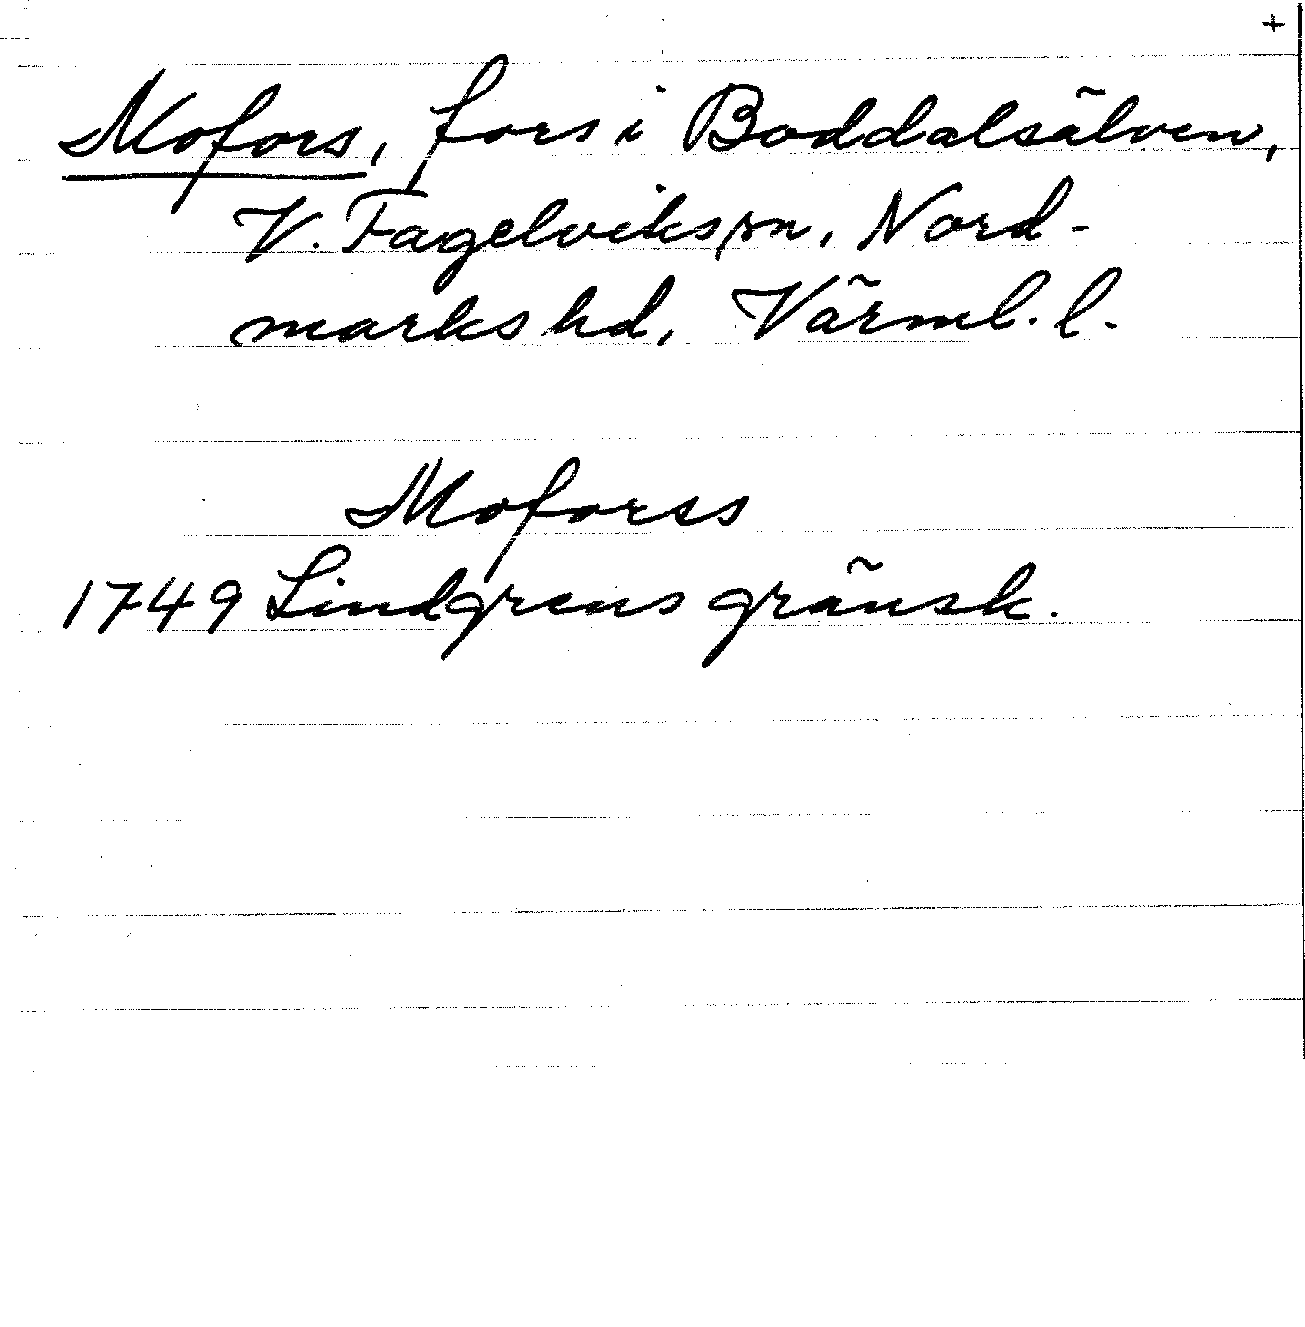 +
Mofors, fors i Boddalsälven,
V. Fagelvikssn, Nord-
marks hd, Värml. l.
Moforss
1749 Lindgrens gränsk.